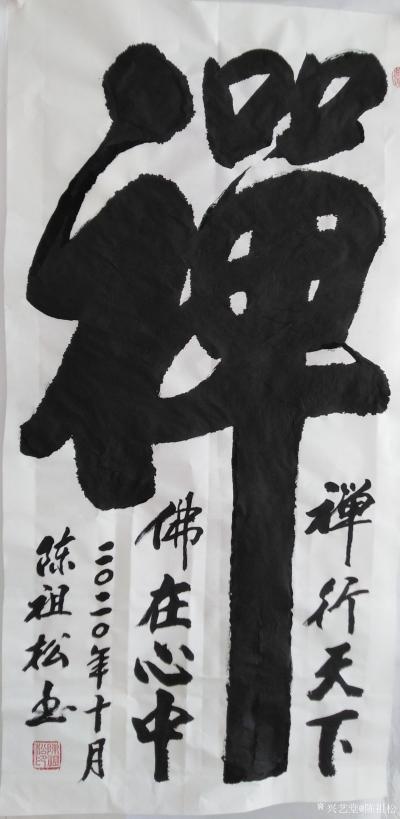 禪
禅行天下
佛在心中
二〇二〇年十月
陈祖松书
兴艺堂@陈祖松